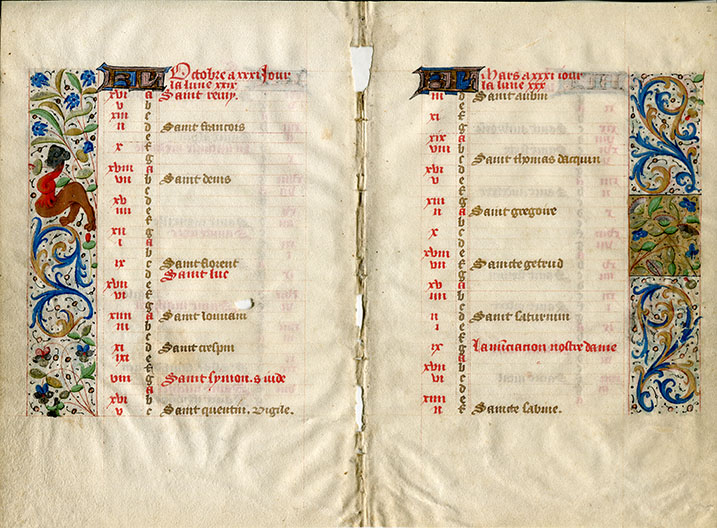 KL Octobre a xxxi Jour
la lune xxix
xvi a Saint remy.
v b
xiii c
ii d Saint francois
e
x f
g
xviii a
vii b Saint denis
c
xv d
iiii e
f
xii g
i a
b
ix c Saint florent
d Saint luc
xvii e
vi f
g
xiiii a Saint louuain
iii b
c
xi d Saint crespin
xix e
f
viii g Saint symon. s iude
a
xvi b
v c Saint quentin. vigile.
2
KL Mars a xxxi iour
la lune xxx
iii d Saint aubin
e
xi f
g
xix a
viii b
c Saint thomas dacquin
xvi d
v e
f
xiii g
ii a Saint gregoire
b
x c
d
xviii e
vii f Saincte getrud
g
xv a
iiii b
c
ii d Saint saturnin
i e
f
ix g Lanuciation nostre dame
a
xvii b
vi c
d
xiiii e
ii f Saincte sabine.